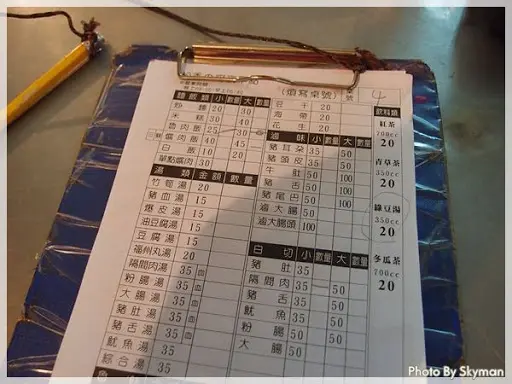 (請寫桌號) 號 4
麵飯類 小 數量 大 數量
粉麵 20 30
米糕 30 40
魯肉飯 25 30
爌肉飯 40 45
白飯 10 20
單點爌肉 30
湯類 金額 數量
竹筍湯 20
豬血湯 15
爆皮湯 15
油豆腐湯 15
豆腐湯 15
福州丸湯 20
隔間肉湯 35
粉腸湯 35
大腸湯 35
豬肚湯 35
豬舌湯 35
魷魚湯 35
綜合湯 35
豆干 20
海帶 20
花生 20
滷味 小 數量 大 數量
豬耳朵 35 50
豬頭皮 35 50
牛肚 50 100
豬舌 50 100
豬尾巴 50 100
滷大腸 50
滷大腸頭 100
白切 小 數量 大 數量
豬肚 35 50
隔間肉 35 50
豬舌 35 50
魷魚 35 50
粉腸 50
大腸 50
飲料類
紅茶
700cc
20
青草茶
350cc
20
綠豆湯
350cc
20
冬瓜茶
700cc
20
Photo By Skyman